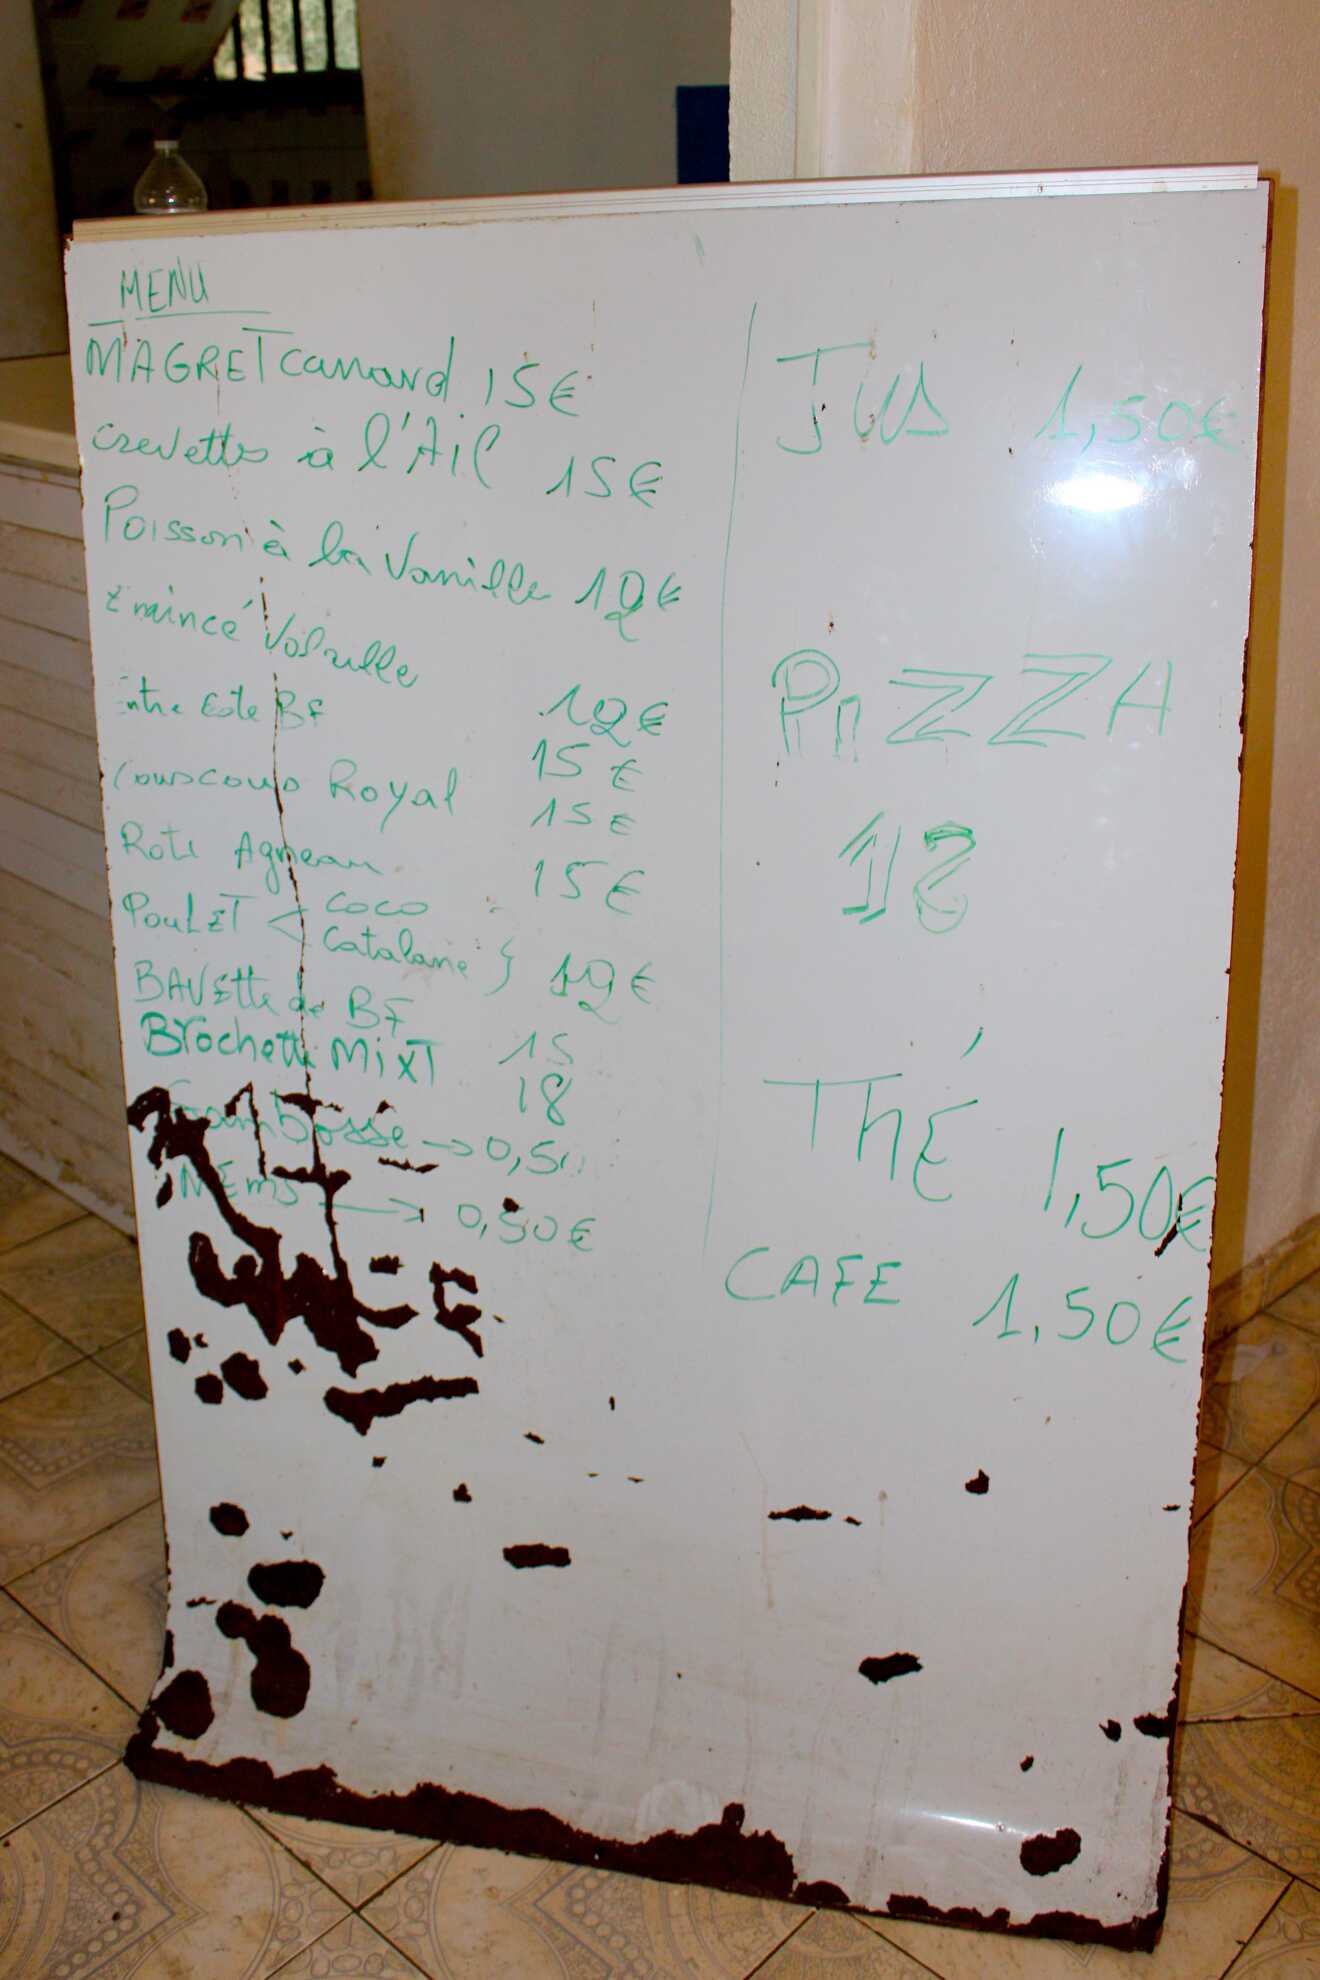 MENU
MAGRET canard 15€
crevettes à l'Ail 15€
Poisson à la Vanille 12€
Emincé Volaille 12€
Entre Cote BF 15€
Couscous Royal 15€
Roti Agneau 15€
PouLET < coco
Catalane } 12€
BAVEtte de BF 15
Brochette MixT 18
Sambossé → 0,50
NEms → 0,50€
JUS 1,50€
PiZZA
12
THÉ 1,50€
CAFE 1,50€